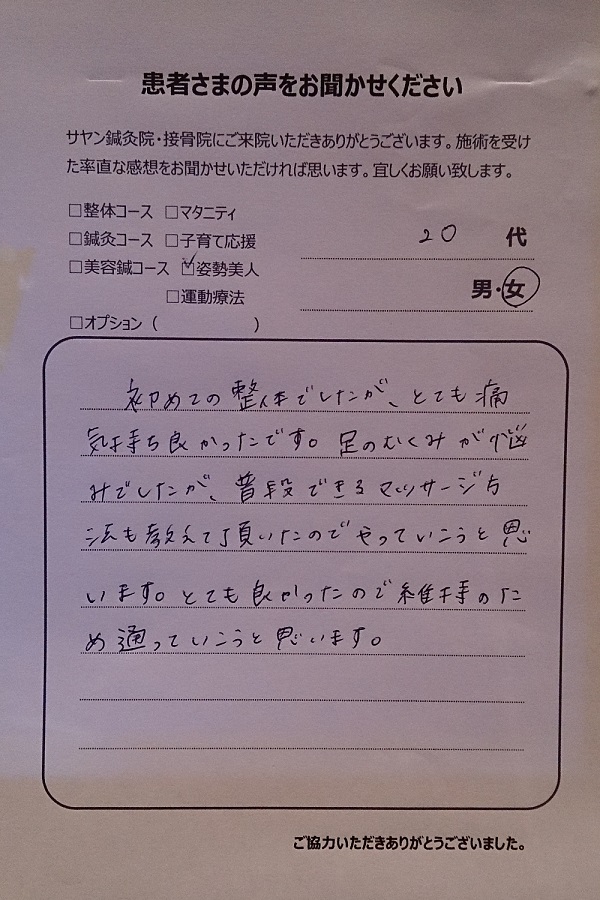 患者さまの声をお聞かせください
サヤン鍼灸院・接骨院にご来院いただきありがとうございます。施術を受け
た率直な感想をお聞かせいただければ思います。宜しくお願い致します。
□整体コース □マタニティ
□鍼灸コース □子育て応援
20 代
□美容鍼コース ☑姿勢美人
男・女
□運動療法
□オプション( )
初めての整体でしたが、とても痛
気持ち良かったです。足のむくみが悩
みでしたが、普段できるマッサージ方
法も教えて頂いたのでやっていこうと思
います。とても良かったので維持のた
め通っていこうと思います。
ご協力いただきありがとうございました。